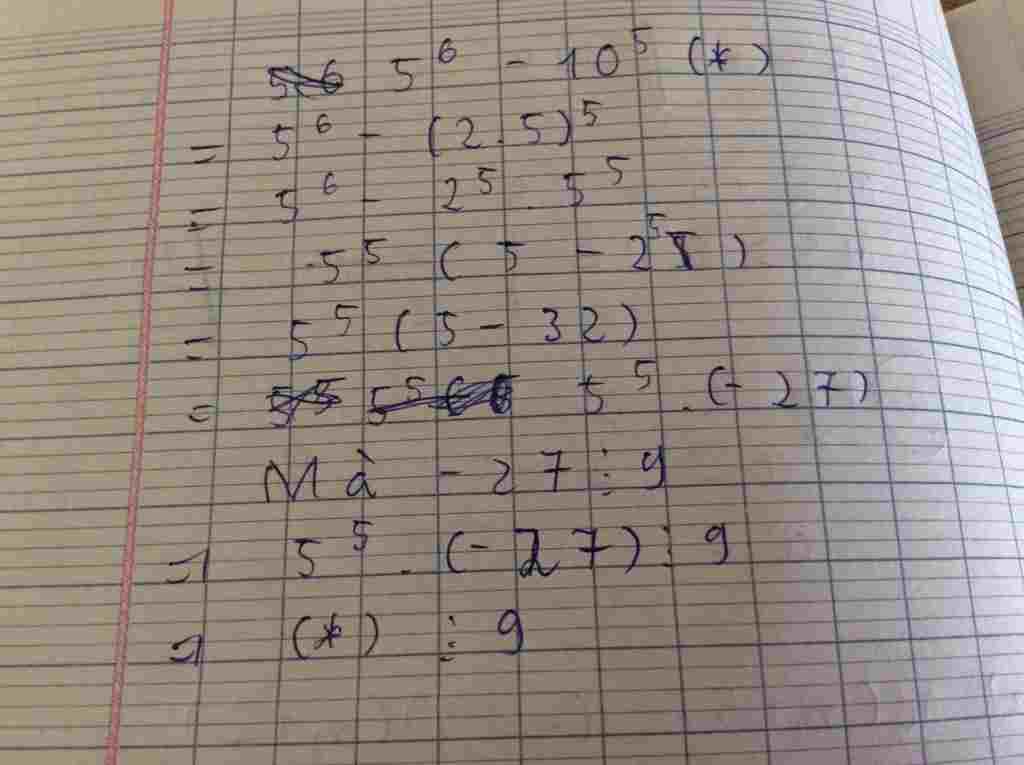 5⁶ - 10⁵ (*)
= 5⁶ - (2.5)⁵
= 5⁶ - 2⁵ . 5⁵
= 5⁵ ( 5 - 2⁵ )
= 5⁵ ( 5 - 32)
= 5⁵ . (- 27)
Mà - 27 ⋮ 9
⇒ 5⁵ . (- 27) ⋮ 9
⇒ (*) ⋮ 9